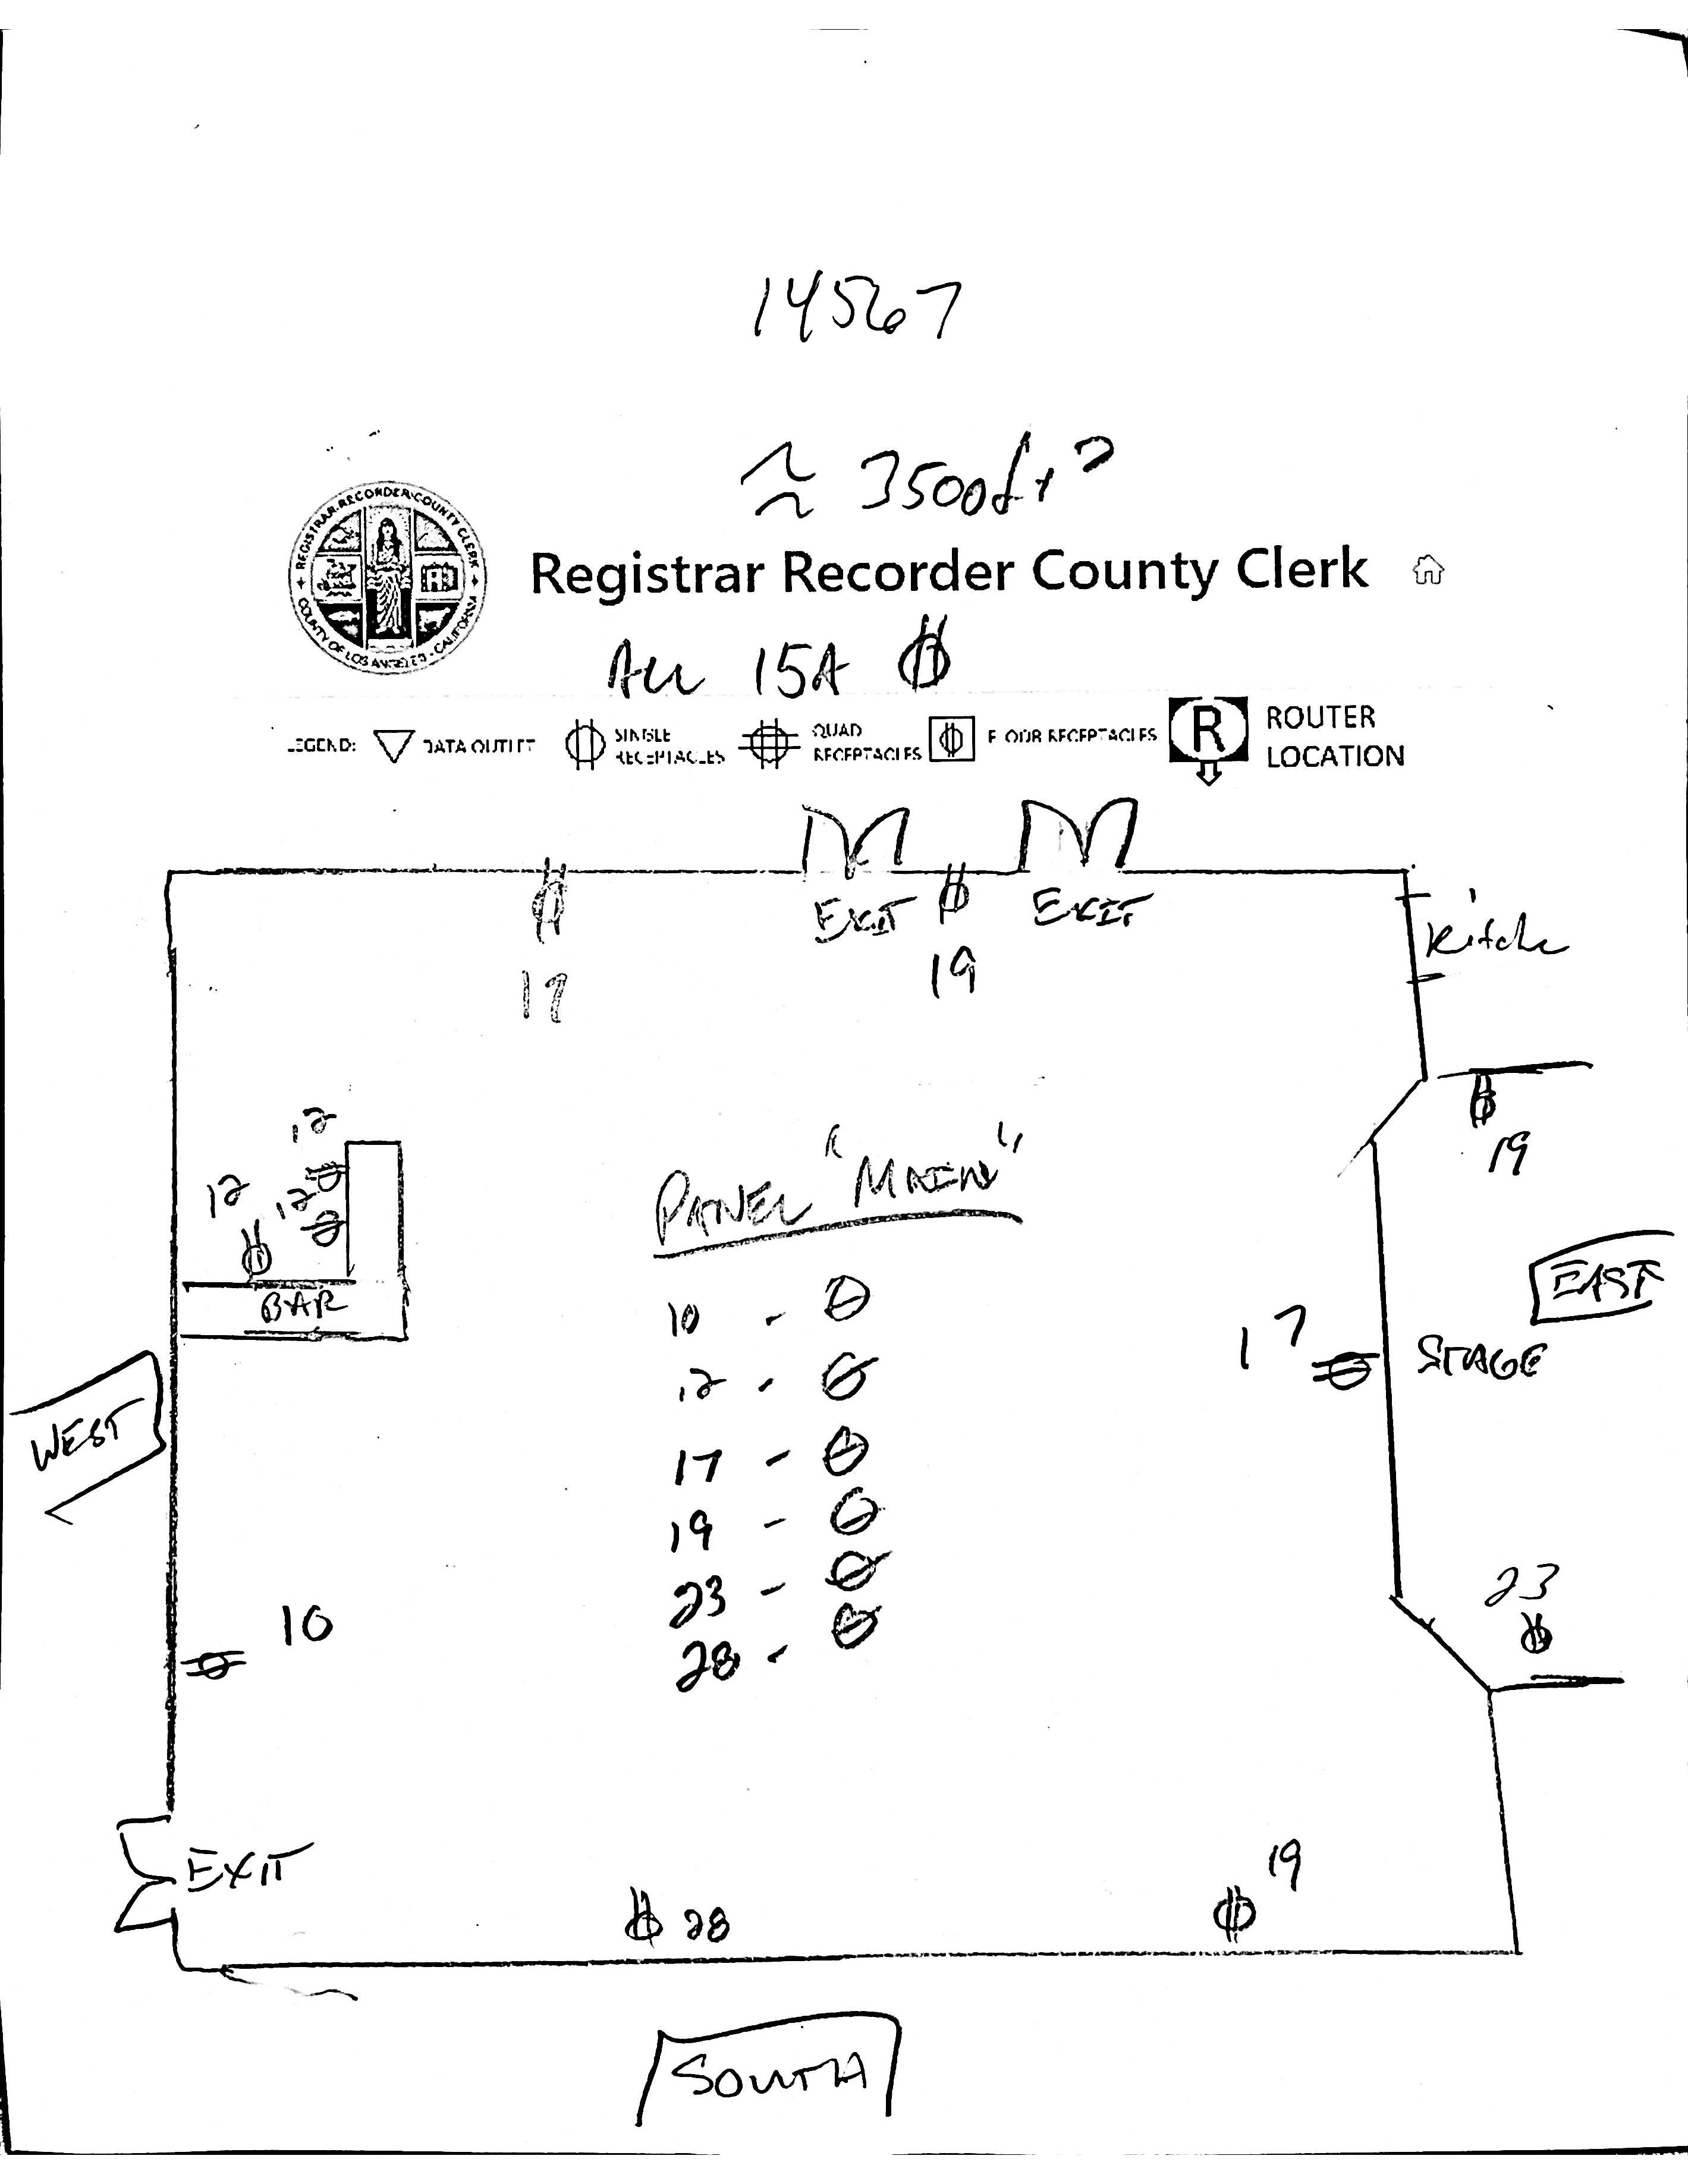 14567
≈ 3500ft²
REGISTRAR-RECORDER/COUNTY CLERK
COUNTY OF LOS ANGELES - CALIFORNIA
Registrar Recorder County Clerk
ALL 15A
LEGEND: DATA OUTLET SINGLE RECEPTACLES QUAD RECEPTACLES FLOOR RECEPTACLES R ROUTER LOCATION
EXIT EXIT
19
Kitche
19
12
12 12
BAR
PANEL "MAIN"
10 -
12 -
17 -
19 -
23 -
28 -
EAST
17
STAGE
WEST
23
10
EXIT
28
19
SOUTH